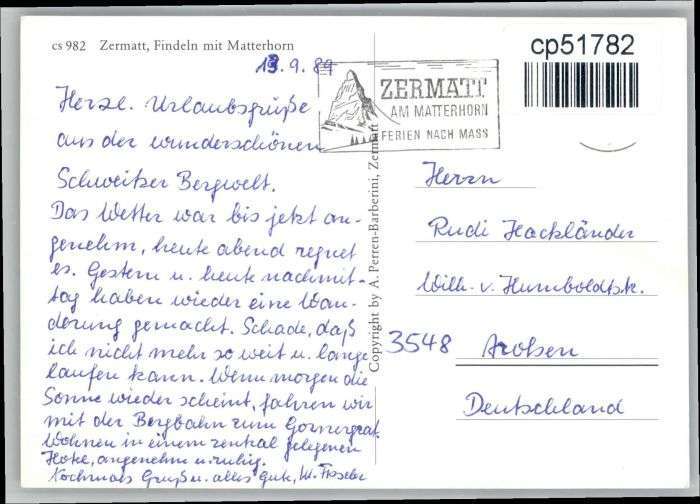 cs 982 Zermatt, Findeln mit Matterhorn
cp51782
13.9.89
ZERMATT
AM MATTERHORN
FERIEN NACH MASS
Herzl. Urlaubsgrüße
aus der wunderschönen
Schweitzer Bergwelt.
Das Wetter war bis jetzt an-
genehm, heute abend regnet
es. Gestern u. heute nachmit-
tag haben wieder eine Wan-
derung gemacht. Schade, daß
ich nicht mehr so weit u. lange
laufen kann. Wenn morgen die
Sonne wieder scheint, fahren wir
mit der Bergbahn zum Gornergrat.
Wohnen in einem zentral gelegenen
Hotel, angenehm u. ruhig.
Nochmals Gruß u. alles Gute,
Copyright by A. Perren-Barberini, Zermatt
Herrn
Rudi Hackländer
Wilh. v. Humboldtstr.
3548 Arolsen
Deutschland